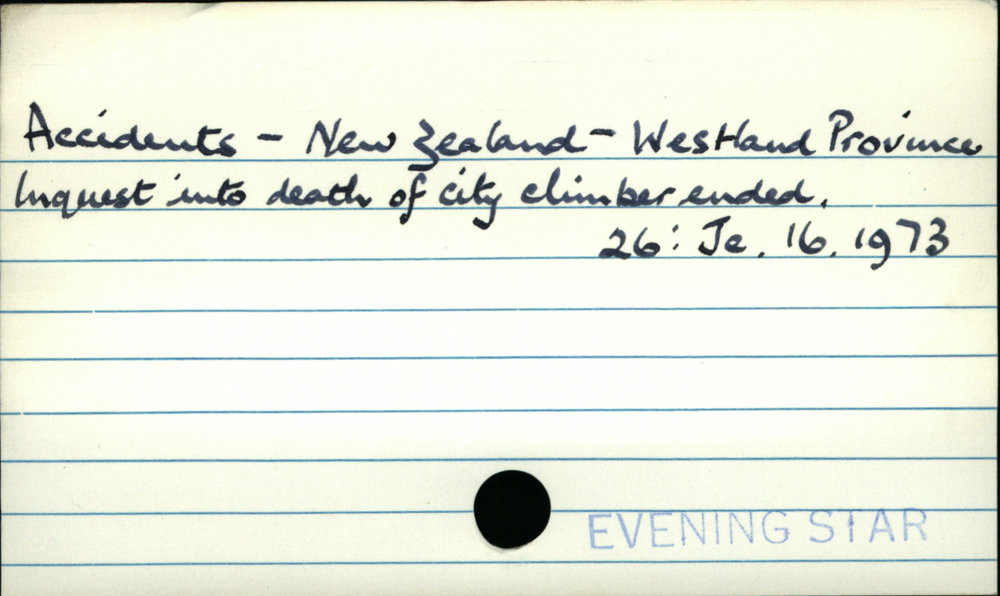 Accidents - New Zealand - Westland Province
Inquest into death of city climber ended.
26: Je. 16. 1973
EVENING STAR